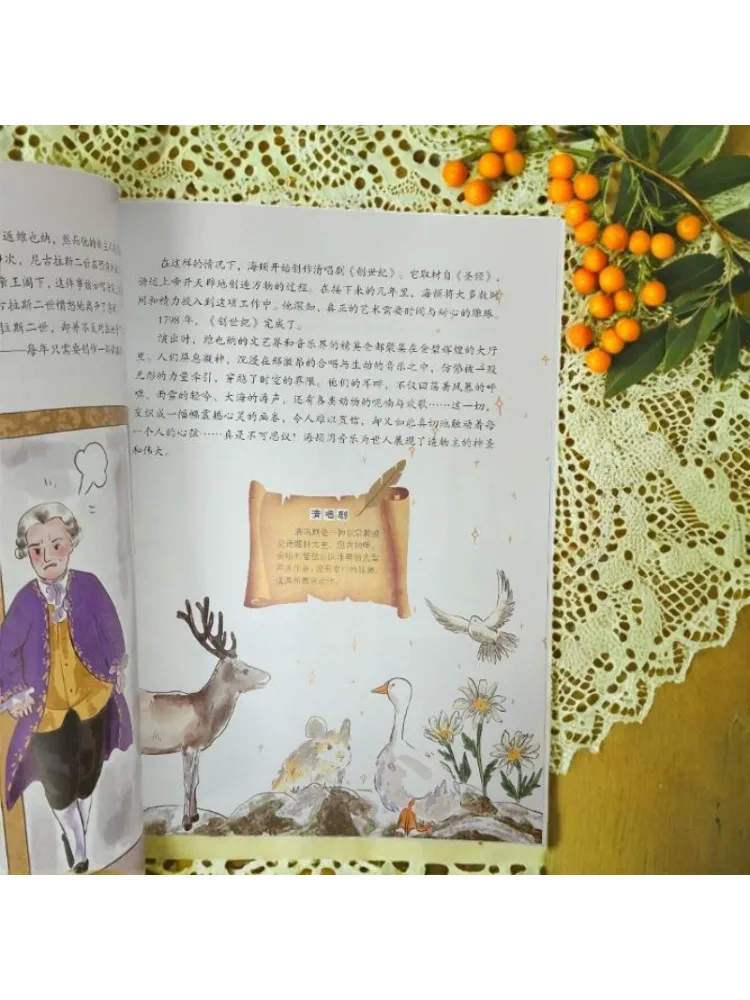 返维也纳，然而他的
次，尼古拉斯二世
亲王阁下，这件事
古拉斯二世愤怒地离开了
拉斯二世，却并不
——每年只需要创作一
在这样的情况下，海顿开始创作清唱剧《创世纪》。它取材自《圣经》，
讲述上帝开天辟地创造万物的过程。在接下来的几年里，海顿将大多数时
间和精力投入到这项工作中。他深知，真正的艺术需要时间与耐心的雕琢。
1798 年，《创世纪》完成了。
演出时，维也纳的文艺界和音乐界的精英全都聚集在金碧辉煌的大厅
里。人们屏息凝神，沉浸在那激昂的合唱与生动的音乐之中，仿佛被一股
无形的力量牵引，穿越了时空的界限。他们的耳畔，不仅回荡着风暴的呼
啸、雨雪的轻吟、大海的涛声，还有各类动物的呢喃与欢歌……这一切，
交织成一幅幅震撼心灵的画卷，令人难以置信，却又如此真切地触动着每
一个人的心弦……真是不可思议！海顿用音乐为世人展现了造物主的神圣
和伟大。
清唱剧
清唱剧是一种以宗教或